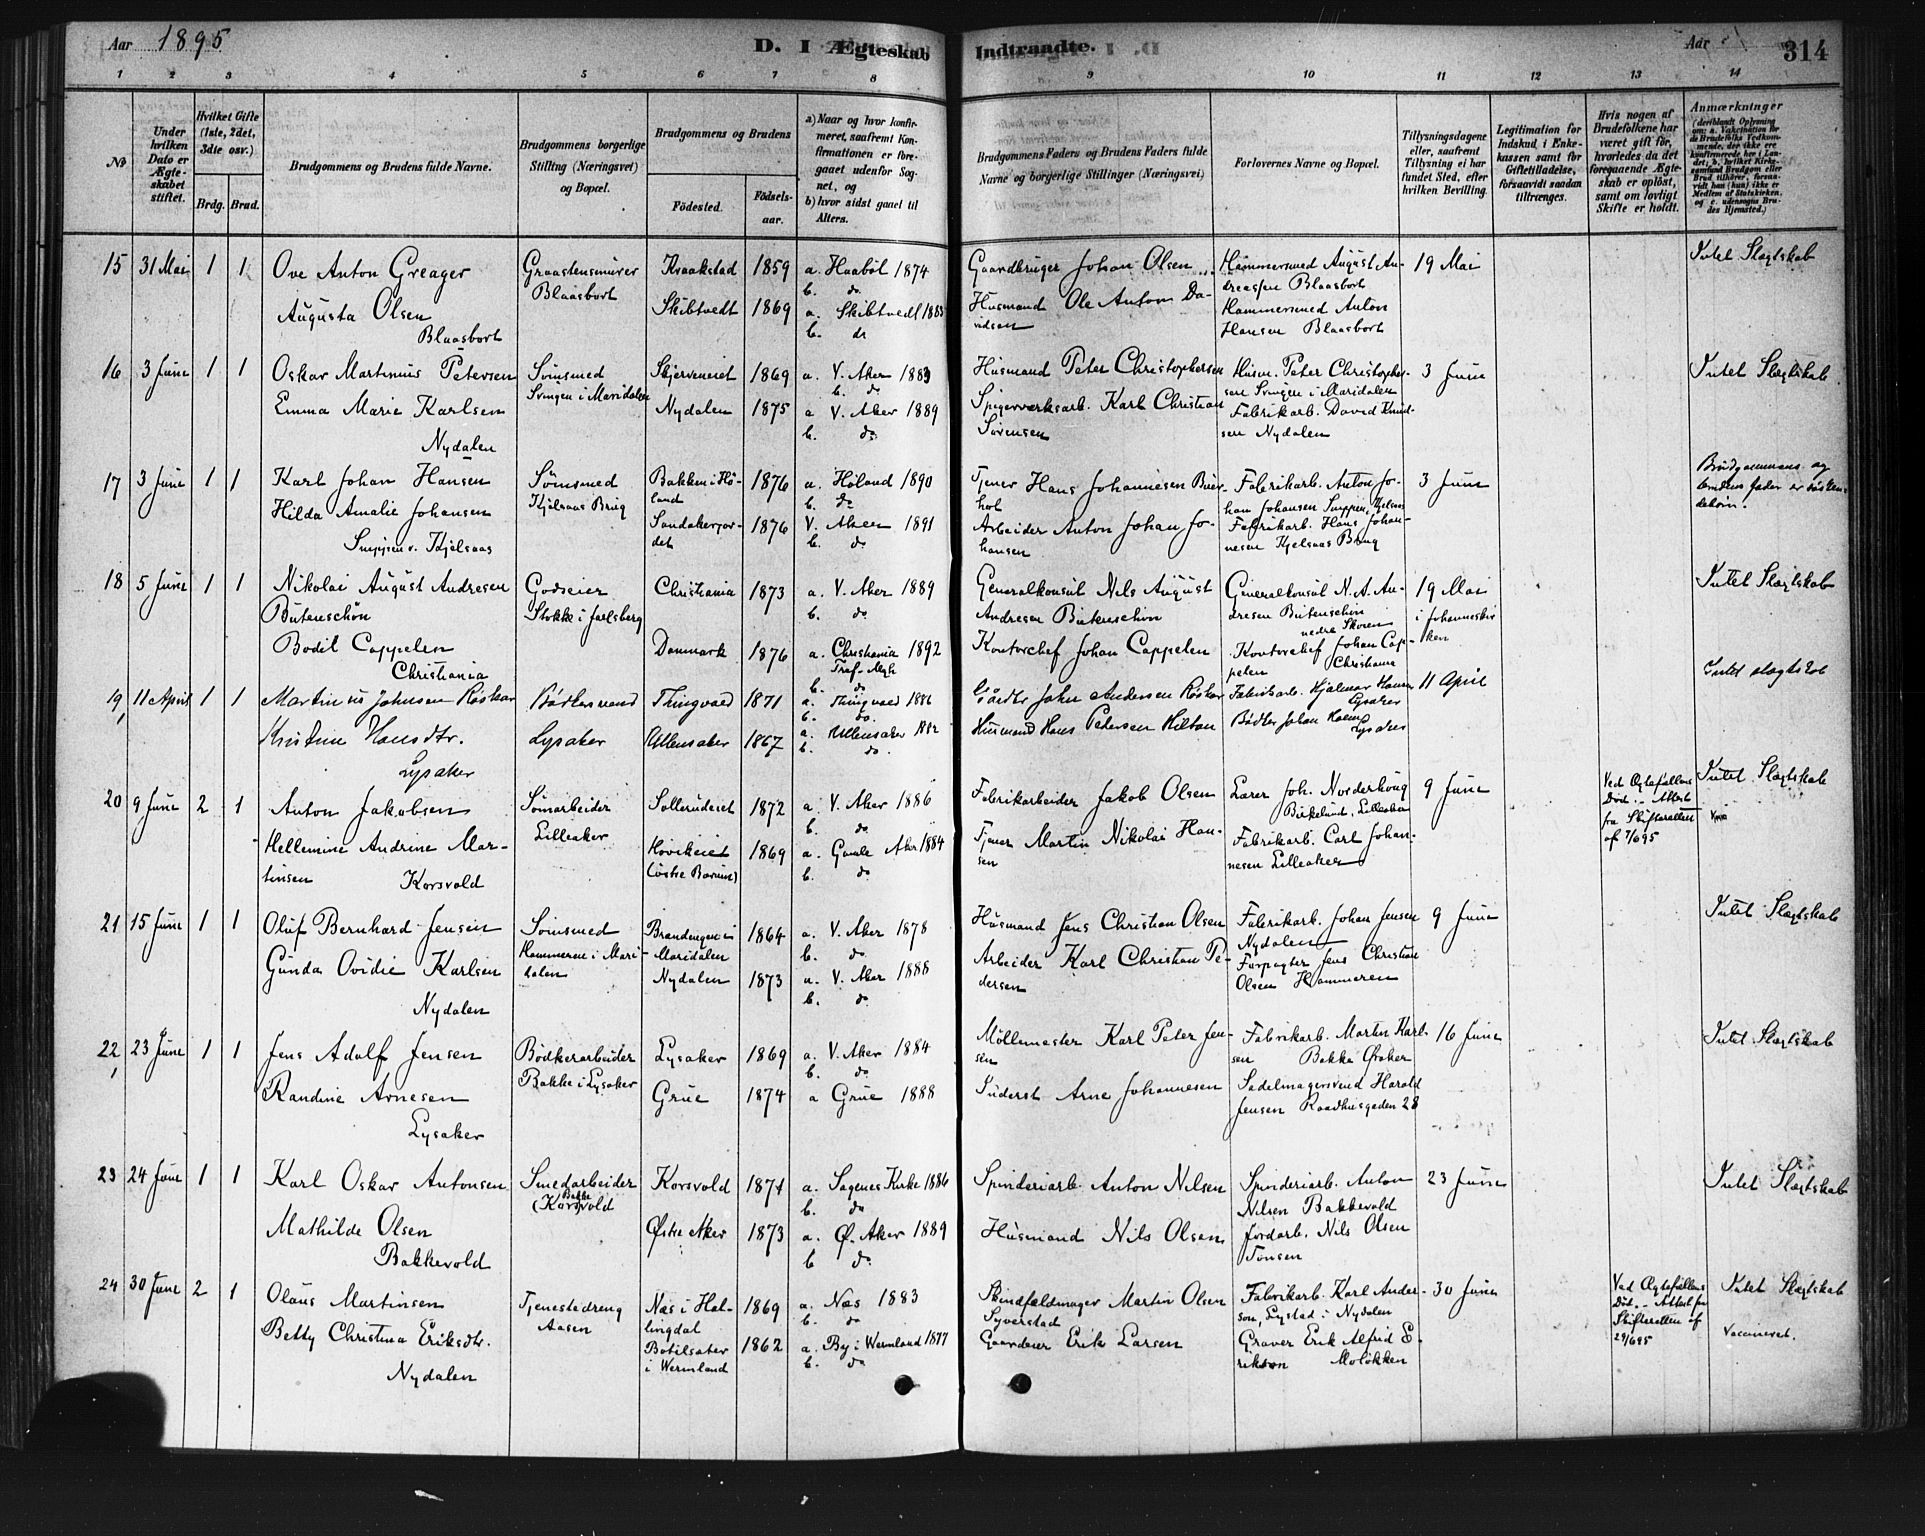 Aar 1895
D. I Ægteskab Indtraadte.
Aar
314
1 2 3 4 5 6 7 8 9 10 11 12 13 14
No
Under hvilken Dato er Ægteskabet stiftet.
Hvilket Gifte (1ste, 2det, 3die osv.)
Brdg. Brud.
Brudgommens og Brudens fulde Navne.
Brudgommens borgerlige Stilling (Næringsvei) og Bopæl.
Brudgommens og Brudens
Fødested. Fødselsaar.
a) Naar og hvor konfirmeret, saafremt Konfirmationen er foregaaet udenfor Sognet, og
b) hvor sidst gaaet til Alters.
Brudgommens Faders og Brudens Faders fulde Navne og borgerlige Stillinger (Næringsvei)
Forlovernes Navne og Bopæl.
Tillysningsdagene eller, saafremt Tillysning ei har fundet Sted, efter hvilken Bevilling.
Legitimation for Indskud i Enkekassen samt for Giftetilladelse, forsaavidt saadan tiltrænges.
Hvis nogen af Brudefolkene har været gift før, hvorledes da det foregaaende Ægteskab er opløst, samt om lovligt Skifte er holdt.
Anmærkninger
15 31 Mai 1 1 Ove Anton Greager Graastensmurer Kraakstad 1859 a. Haabøl 1874 Gaardbruger Johan Olsen Hammersmed August An- 19 Mai Intet Slægtskab
Blaasbort b. do dreassen Blaasbort
Augusta Olsen Skibtvedt 1869 a. Skibtvedt 1885 Husmand Ole Anton Da- Hammersmed Anton
Blaasbort b. do vidsen Hansen Blaasbort
16 3 June 1 1 Oskar Martinius Petersen Sømsmed Skjerveneiet 1869 a. V. Aker 1883 Husmand Peter Christophersen Husm. Peter Christopher- 3 June Intet Slægtskab
Svingen i Maridalen b. do sen Svingen i Maridalen
Emma Marie Karlsen Nydalen 1875 a V. Aker 1889 Spigerværksarb. Karl Christian Fabrikarb. David Knud-
Nydalen b. do Sørensen sen Nydalen
17 3 June 1 1 Karl Johan Hansen Sømsmed Bakken i Hø- 1876 a. Høland 1890 Tjener Hans Johannesen Bier- Fabrikarb. Anton Jo- 3 June Brudgommens og
Kjelsaas Brug land b. do hol han Johansen Snippen, Kjelsaas brudens fader er søsken-
Hilda Amalie Johansen Sandakerjor- 1876 V. Aker 1891 Arbeider Anton Johan Jo- Fabrikarb. Hans Johan- debørn.
Snippen v. Kjelsaas det b. do hansen nesen Kjelsaas Brug
18 5 June 1 1 Nikolai August Andresen Godseier Christiania 1873 a. V. Aker 1889 Generalkonsul Nils August Generalkonsul N. A. An- 19 Mai Intet Slægtskab
Butenschøn Stokke i Jarlsberg b. do Andresen Butenschøn dresen Butenschøn i Johanneskir
nedre Skøren ken
Bodil Cappelen Danmark 1876 a. Christiania 1892 Kontorchef Johan Cappelen Kontorchef Johan Cap-
Christiania Tref. Mgh pelen Christiania
b. do
19 11 April 1 1 Martinius Johnsen Røskar Bødkersvend Thingvold 1871 a. Thingvold 1886 Gårdbr John Andersen Røskar Fabrikarb. Hjalmar Hansen 11 April Intet slægtskab
b. do. Lysaker
Kristine Hansdtr. Lysaker Ullensaker 1867 a. Ullensaker 1882 Husmand Hans Pedersen Hilton Bødker Johan Holm
Lysaker b. do. Lysaker
20 9 June 2 1 Anton Jakobsen Sømarbeider Solleruderet 1872 a. V. Aker 1886 Fabrikarbeider Jakob Olsen Lærer Joh. Norderhoug 9 June Ved Ægtefællens Intet Slægtskab
Lilleaker b. do Birkelund, Lilleaker Død. - Attest
Hellemine Andrine Mar- Hovikeiet 1869 a. Gamle Aker 1884 Tjener Martin Nikolai Han- Fabrikarb. Carl Johan- fra Skifteretten
tinsen Korsvold (østre Bærum) b. do sen nesen Lilleaker af 7/6 95
21 15 June 1 1 Oluf Bernhard Jensen Sømsmed Brandengen i 1864 a. V. Aker 1878 Husmand Jens Christian Olsen Fabrikarb. Johan Jensen 9 June Intet Slægtskab
Hammeren i Mari- Maridalen b. do Nydalen
Gunda Ovidie Karlsen dalen Nydalen 1873 a. V. Aker 1888 Arbeider Karl Christian Pe- Forpagter Jens Christian
Nydalen b. do dersen Olsen Hammeren
22 23 June 1 1 Jens Adolf Jensen Bødkerarbeider Lysaker 1869 a. V. Aker 1884 Møllemester Karl Peter Jen- Fabrikarb. Martin Karl- 16 June Intet Slægtskab
Bakke i Lysaker b. do sen sen Bakke Øraker
Randine Arnesen Grue 1874 a Grue 1888 Inderst Arne Johannesen Sadelmagersvend Harald
Lysaker Jensen Raadhusgaden 28
23 24 June 1 1 Karl Oskar Antonsen Smedarbeider Korsvold 1874 a. Sagenes Kirke 1886 Spinderiarb. Anton Nilsen Spinderiarb. Anton 23 June Intet Slægtskab
Bakke (Korsvold b. do Nilsen Bakkevold
Mathilde Olsen Østre Aker 1873 a. Ø. Aker 1889 Husmand Nils Olsen Jordarb. Nils Olsen
Bakkevold b do Tonsen
24 30 June 2 1 Olaus Martinsen Tjenestedreng Næs i Hal- 1869 a. Næs 1883 Skindfældmager Martin Olsen Fabrikarb. Karl Ander- 30 June Ved Ægtefællens Intet Slægtskab
Aasen lingdal b. do Syverstad son, Lystad i Nydalen Død. - Attest fra
Betty Christina Eriksdtr. Botilsater 1862 a. By i Wermland 1877 Gaardeier Erik Larsen Graver Erik Alfrid E- Skifteretten af Vaccineret.
Nydalen i Wermland b. do rikson Moløkken 29/6 95